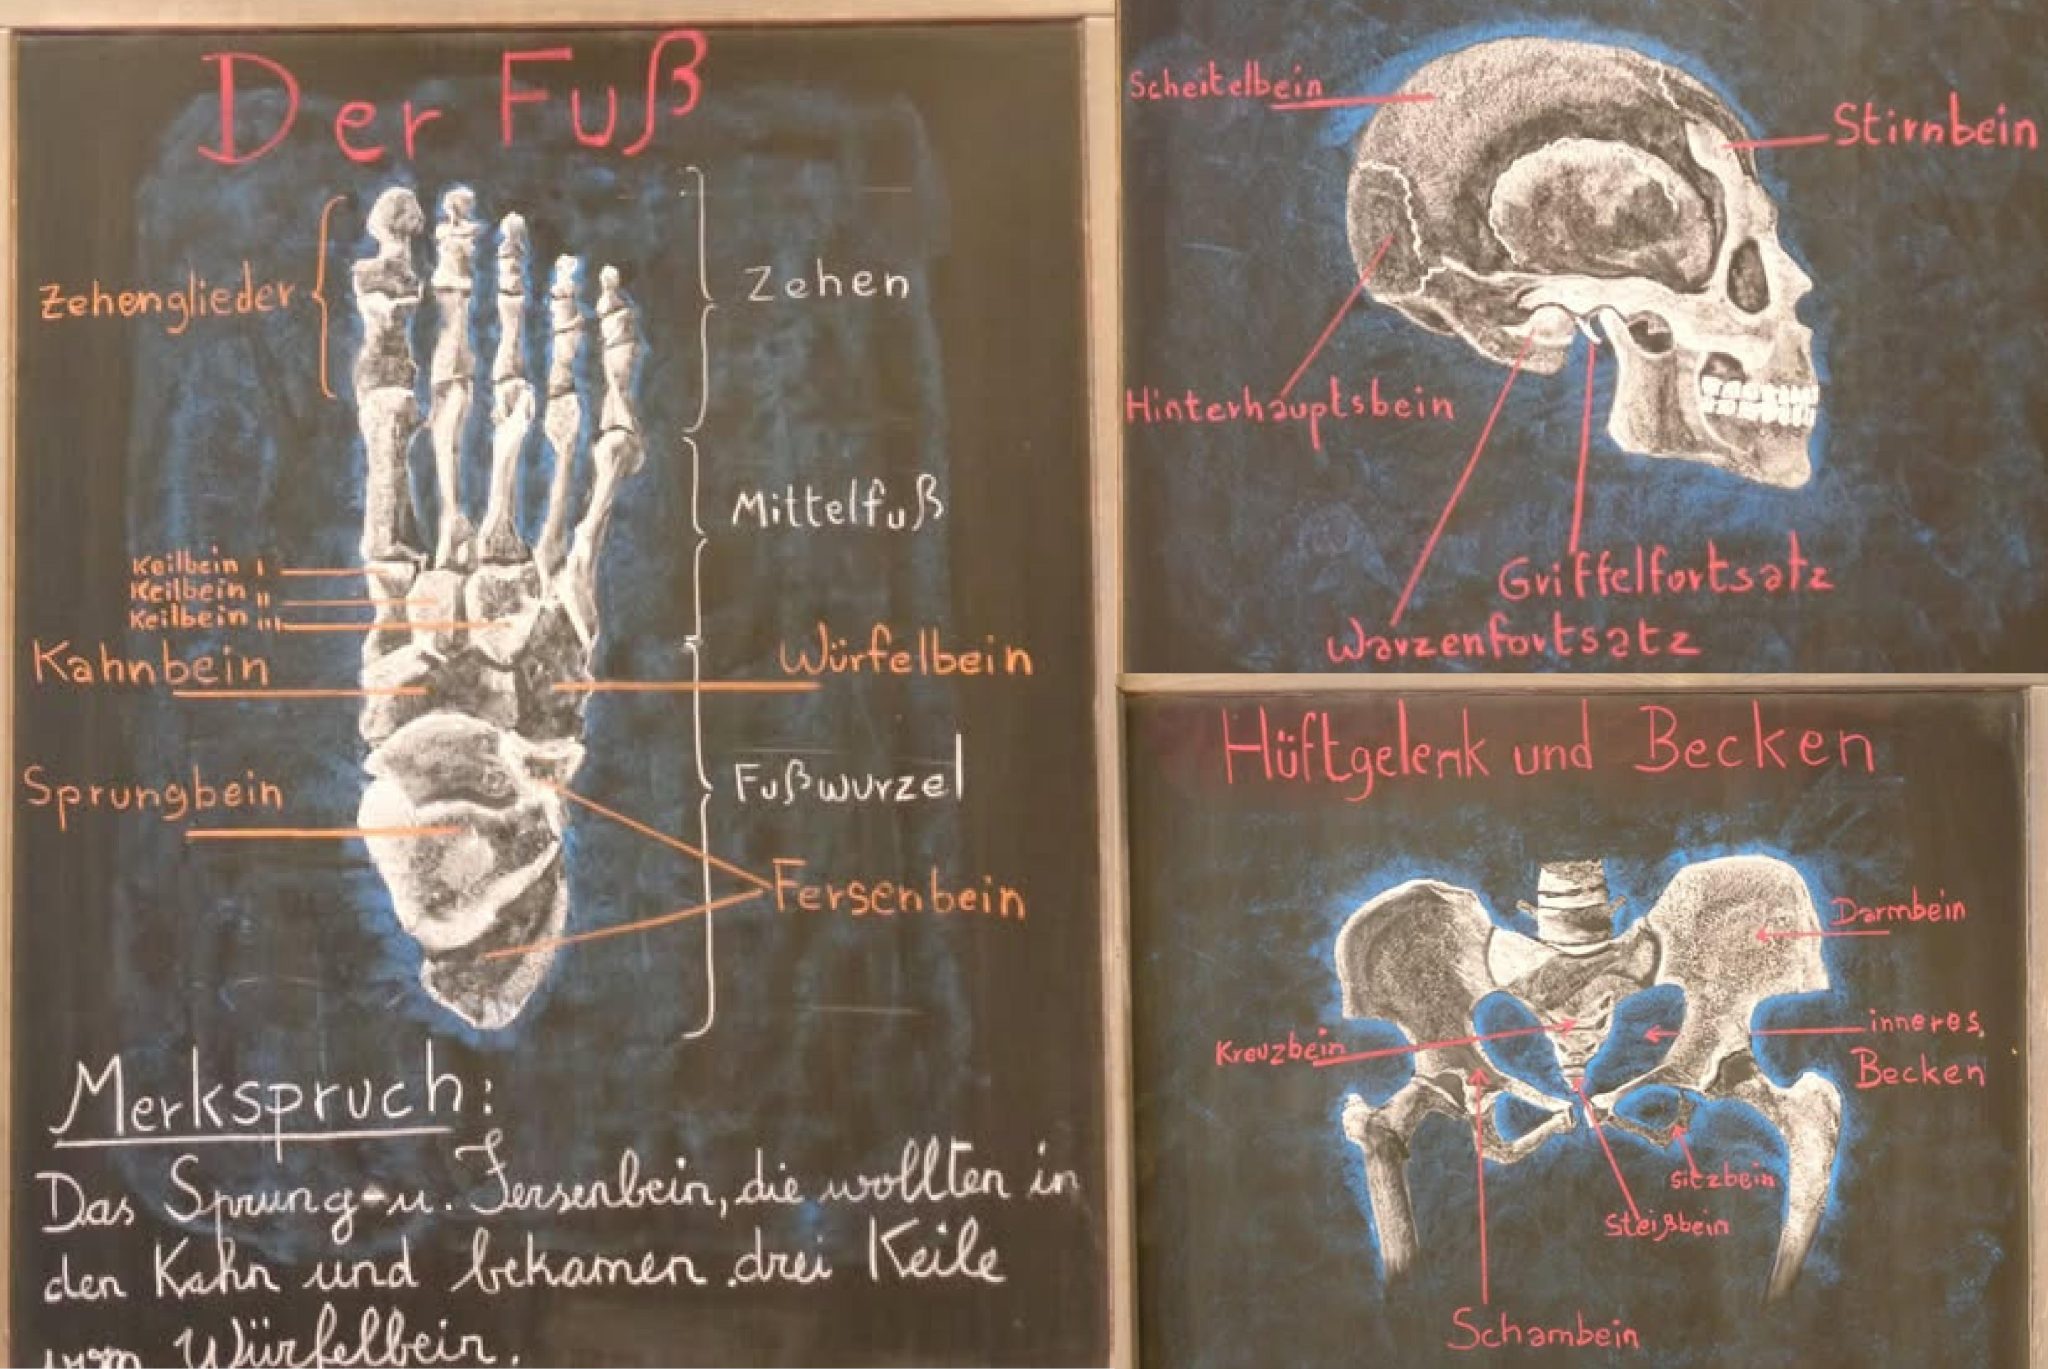 Der Fuß
Zehenglieder
Zehen
Mittelfuß
Keilbein I
Keilbein II
Keilbein III
Kahnbein
Würfelbein
Sprungbein
Fußwurzel
Fersenbein
Merkspruch:
Das Sprung- u. Fersenbein, die wollten in
den Kahn und bekamen drei Keile
vom Würfelbein.
Scheitelbein
Stirnbein
Hinterhauptsbein
Griffelfortsatz
Warzenfortsatz
Hüftgelenk und Becken
Darmbein
inneres
Becken
Kreuzbein
sitzbein
Steißbein
Schambein